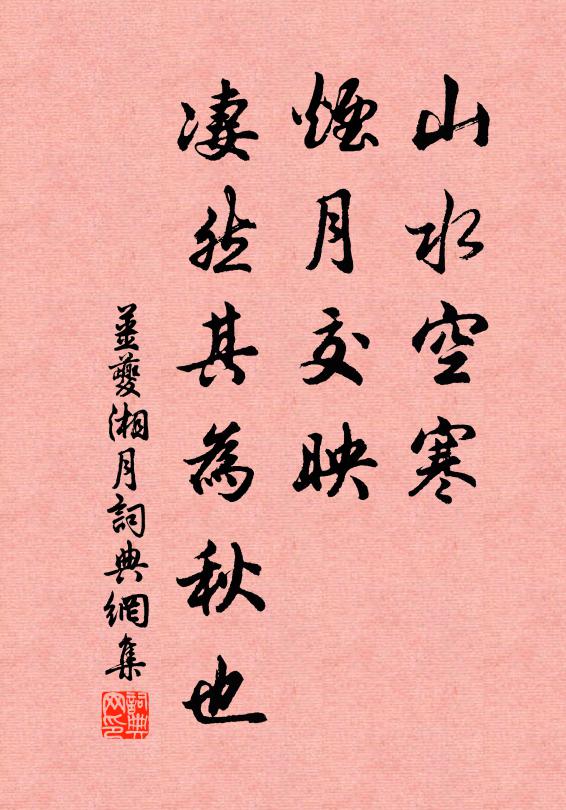 山水空寒
煙月交映
凄然其為秋也
姜夔湘月詞典網集
詞典网印